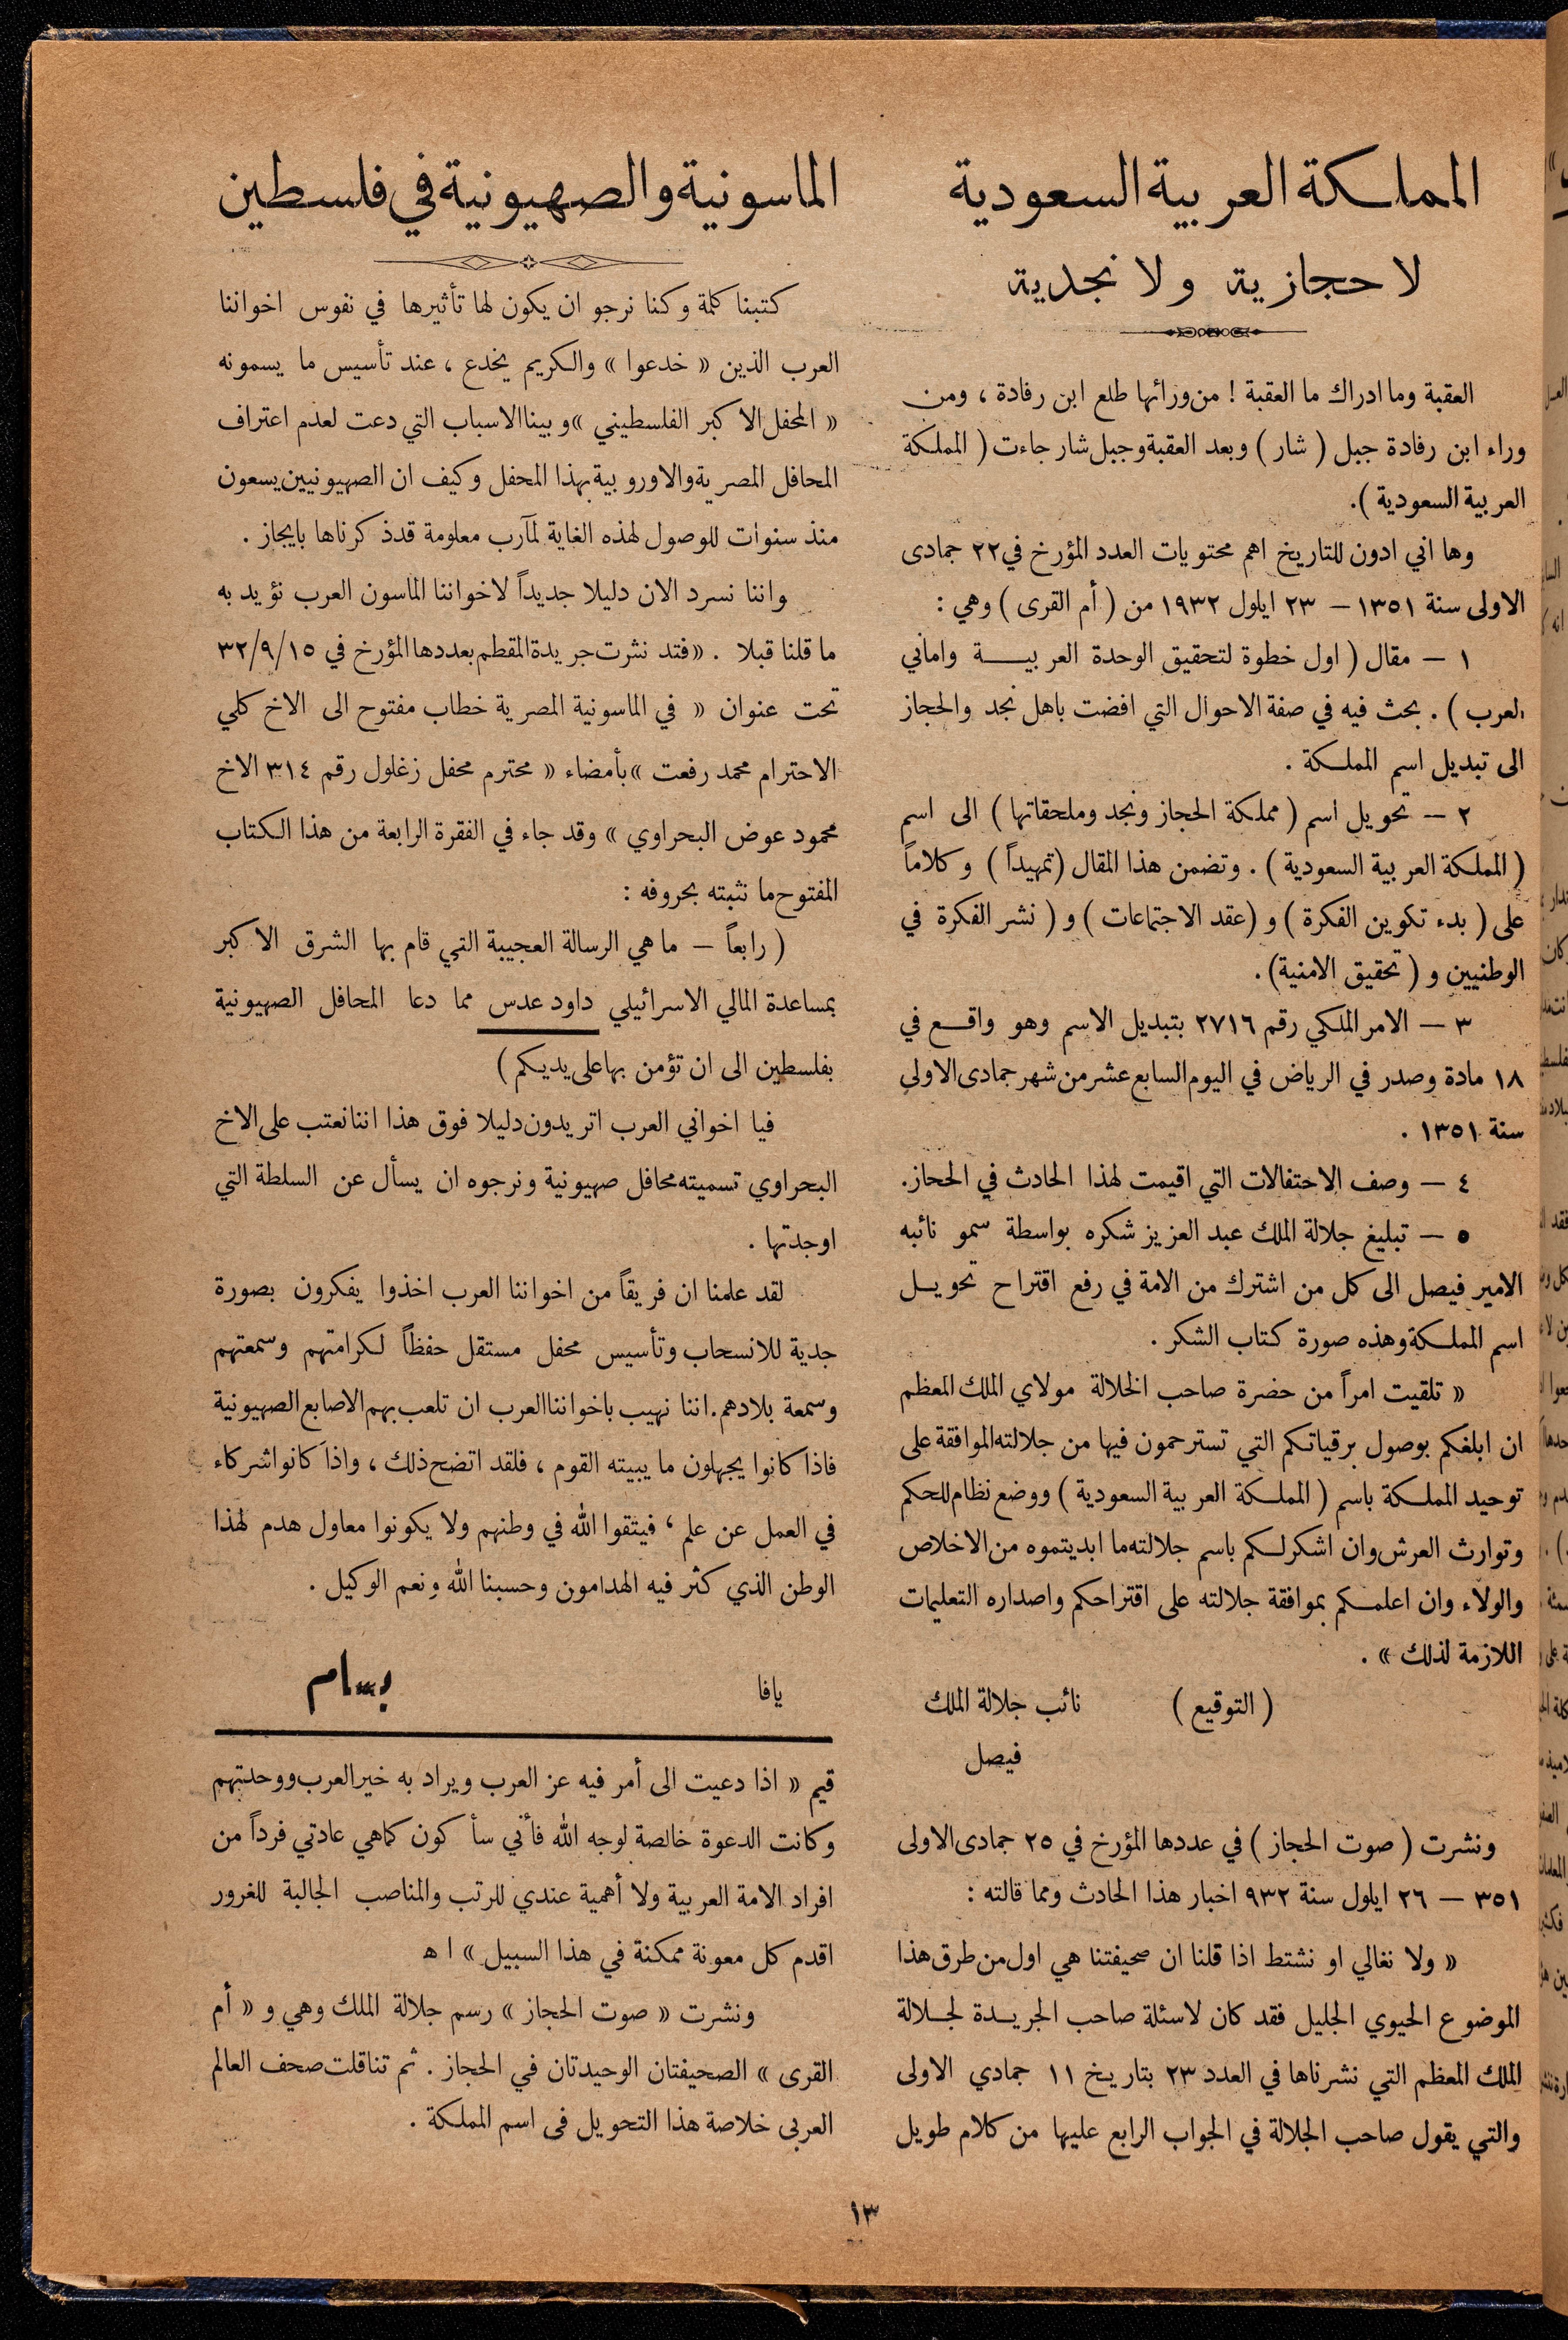 المملكة العربية السعودية
لا حجازية ولا نجدية
العقبة وما ادراك ما العقبة ! من ورائها طلع ابن رفادة ، ومن
وراء ابن رفادة جبل ( شار ) وبعد العقبة وجبل شار جاءت ( المملكة
العربية السعودية ) .
وها اني ادون للتاريخ اهم محتويات العدد المؤرخ في ٢٢ جمادى
الاولى سنة ١٣٥١ – ٢٣ ايلول ١٩٣٢ من ( أم القرى ) وهي :
١ – مقال ( اول خطوة لتحقيق الوحدة العربيـــة واماني
العرب ) . بحث فيه في صفة الاحوال التي افضت باهل نجد والحجاز
الى تبديل اسم المملكة .
٢ – تحويل اسم ( مملكة الحجاز ونجد وملحقاتها ) الى اسم
( المملكة العربية السعودية ) . وتضمن هذا المقال ( تمهيداً ) وكلاماً
على ( بدء تكوين الفكرة ) و ( عقد الاجتماعات ) و ( نشر الفكرة في
الوطنيين و ( تحقيق الامنية) .
٣ – الامر الملكي رقم ٢٧١٦ بتبديل الاسم وهو واقــع في
١٨ مادة وصدر في الرياض في اليوم السابع عشر من شهر جمادى الاولى
سنة ١٣٥١ .
٤ – وصف الاحتفالات التي اقيمت لهذا الحادث في الحجاز.
٥ – تبليغ جلالة الملك عبد العزيز شكره بواسطة سمو نائبه
الامير فيصل الى كل من اشترك من الامة في رفع اقتراح تحويــل
اسم المملكة وهذه صورة كتاب الشكر .
« تلقيت امراً من حضرة صاحب الجلالة مولاي الملك المعظم
ان ابلغكم بوصول برقياتكم التي تسترحمون فيها من جلالته الموافقة على
توحيد المملكة باسم ( المملكة العربية السعودية ) ووضع نظام للحكم
وتوارث العرش وان اشكر لكم باسم جلالته ما ابديتموه من الاخلاص
والولاء وان اعلمكم بموافقة جلالته على اقتراحكم واصداره التعليمات
اللازمة لذلك » .
( التوقيع ) نائب جلالة الملك
فيصل
ونشرت ( صوت الحجاز ) في عددها المؤرخ في ٢٥ جمادى الاولى
٣٥١ – ٢٦ ايلول سنة ٩٣٢ اخبار هذا الحادث ومما قالته :
« ولا نغالي او نشتط اذا قلنا ان صحيفتنا هي اول من طرق هذا
الموضوع الحيوي الجليل فقد كان لاسئلة صاحب الجريــدة لجــلالة
الملك المعظم التي نشرناها في العدد ٢٣ بتاريخ ١١ جمادي الاولى
والتي يقول صاحب الجلالة في الجواب الرابع عليها من كلام طويل
الماسونية والصهيونية في فلسطين
كتبنا كلمة وكنا نرجو ان يكون لها تأثيرها في نفوس اخواننا
العرب الذين « خدعوا » والكريم يخدع ، عند تأسيس ما يسمونه
« المحفل الاكبر الفلسطيني » وبينا الاسباب التي دعت لعدم اعتراف
المحافل المصرية والاوروبية بهذا المحفل وكيف ان الصهيونيين يسعون
منذ سنوات للوصول لهذه الغاية لمآرب معلومة قد ذكرناها بايجاز .
واننا نسرد الان دليلا جديداً لاخواننا الماسون العرب نؤيد به
ما قلنا قبلا . « فتد نثرت جريدة المقطم بعددها المؤرخ في ٣٢/٩/١٥
تحت عنوان « في الماسونية المصرية خطاب مفتوح الى الاخ كلي
الاحترام محمد رفعت » بأمضاء « محترم محفل زغلول رقم ٣١٤ الاخ
محمود عوض البحراوي » وقد جاء في الفقرة الرابعة من هذا الكتاب
المفتوح ما نثبته بحروفه :
( رابعاً – ما هي الرسالة العجيبة التي قام بها الشرق الاكبر
بمساعدة المالي الاسرائيلي داود عدس مما دعا المحافل الصهيونية
بفلسطين الى ان تؤمن بها على يديكم )
فيا اخواني العرب اتريدون دليلا فوق هذا اننا نعتب على الاخ
البحراوي تسميته محافل صهيونية ونرجوه ان يسأل عن السلطة التي
اوجدتها .
لقد علمنا ان فريقاً من اخواننا العرب اخذوا يفكرون بصورة
جدية للانسحاب وتأسيس محفل مستقل حفظاً لكرامتهم وسمعتهم
وسمعة بلادهم. اننا نهيب باخواننا العرب ان تلعب بهم الاصابع الصهيونية
فاذا كانوا يجهلون ما يبيته القوم ، فلقد اتضح ذلك ، واذا كانوا شركاء
في العمل عن علم ، فيتقوا الله في وطنهم ولا يكونوا معاول هدم لهذا
الوطن الذي كثر فيه الهدامون وحسبنا الله ونعم الوكيل .
يافا بسام
قيم « اذا دعيت الى أمر فيه عز العرب ويراد به خير العرب ووحدتهم
وكانت الدعوة خالصة لوجه الله فأني سأكون كما هي عادتي فرداً من
افراد الامة العربية ولا أهمية عندي للرتب والمناصب الجالبة للغرور
اقدم كل معونة ممكنة في هذا السبيل » ا ه
ونشرت « صوت الحجاز » رسم جلالة الملك وهي و « أم
القرى » الصحيفتان الوحيدتان في الحجاز . ثم تناقلت صحف العالم
العربى خلاصة هذا التحويل فى اسم المملكة .
١٣